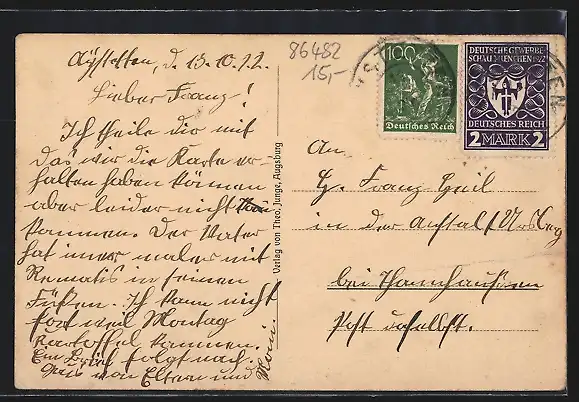 d. 13.10.22.
Lieber Franz!
Ich theile dir mit
das wir die Karte er-
halten haben können
aber leider nicht
kommen. Der Vater
hat immer maler mit
Rematis in seinen
Füßen. Ich kann nicht
fort weil Montag
Kartoffel kommen.
Ein Brief folgt nach.
Gruß von Eltern und
Verlag von Theo. Junge, Augsburg
86482
15,-
100
Deutsches Reich
DEUTSCHE GEWERBE
SCHAU MÜNCHEN 1922
DEUTSCHES REICH
2 MARK 2
An
H. Franz Heil
in der Anstalt Ursberg
bei Thannhausen
Post daselbst.